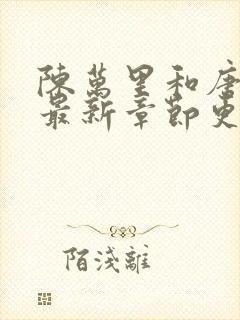 陳萬里和唐
最新章節更
陌淺離